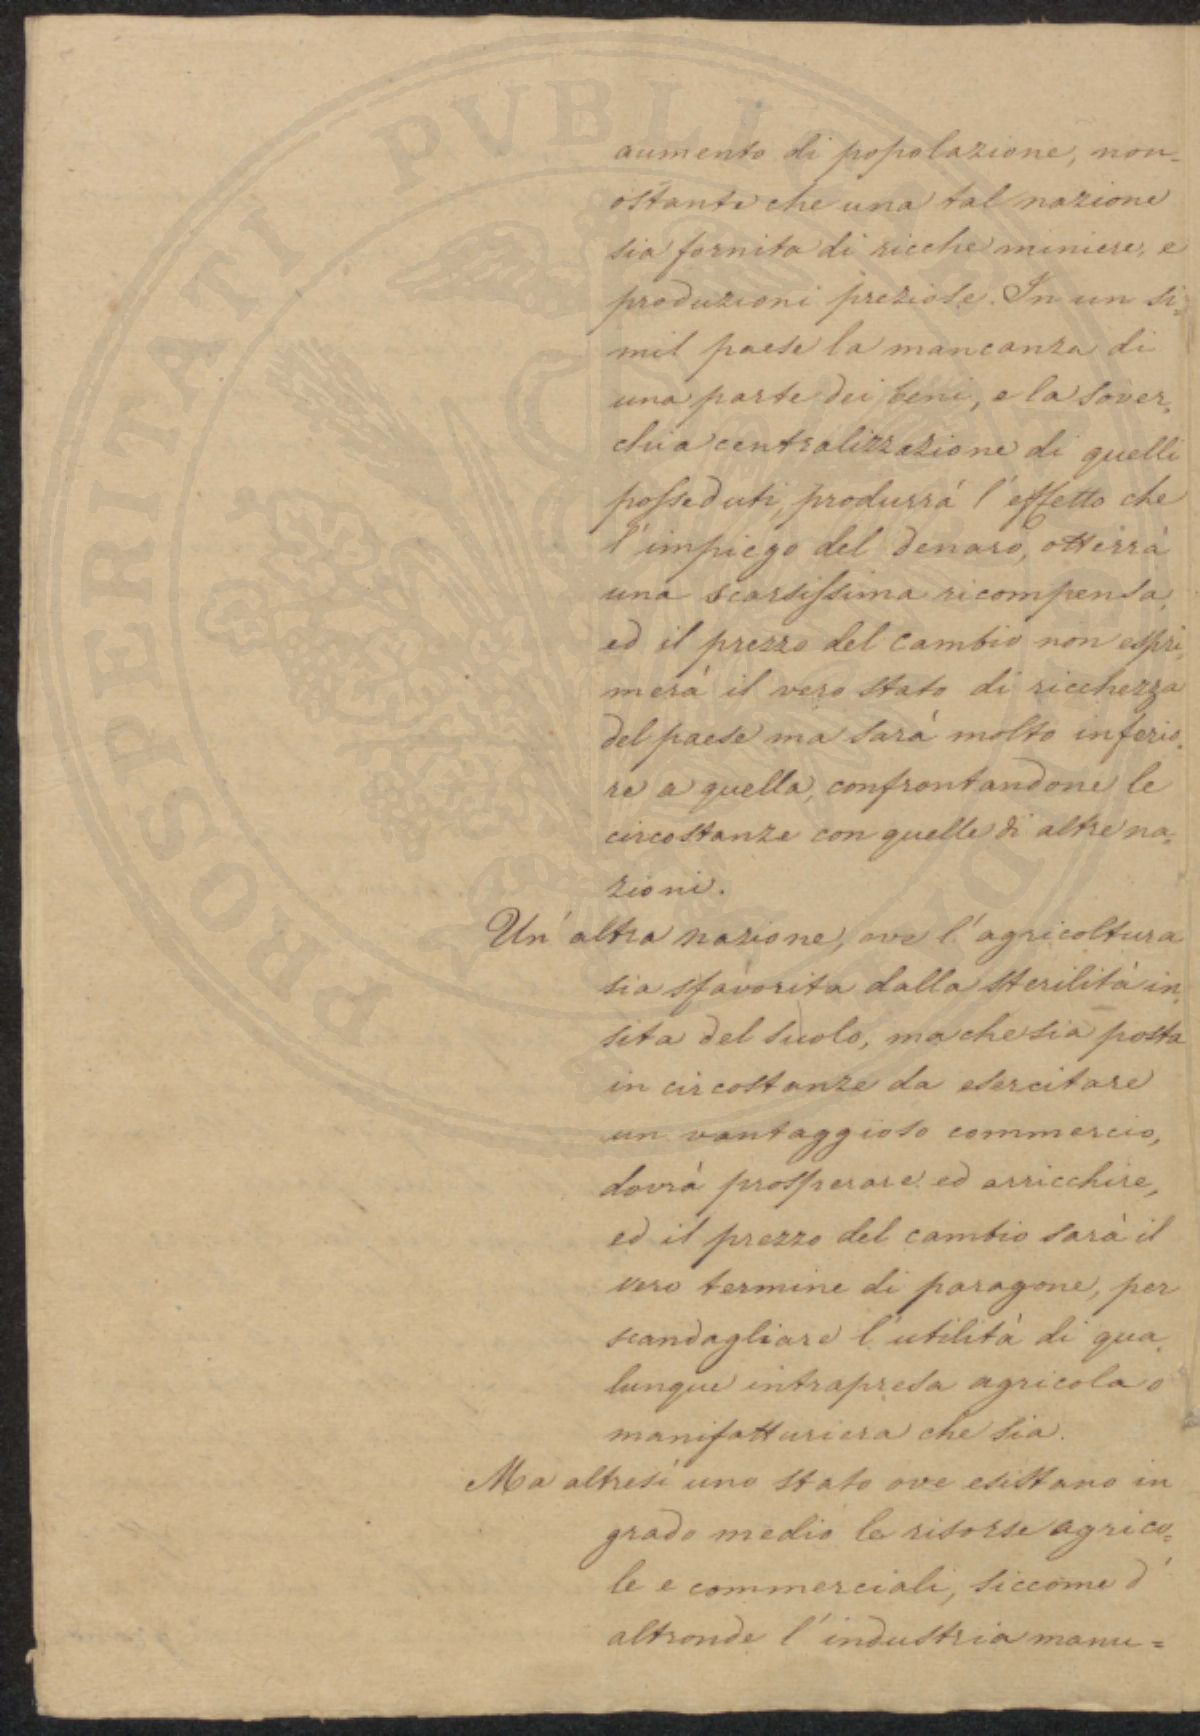 PROSPERITATI PVBLICAE
aumento di popolazione, non=
ostante che una tal nazione
sia fornita di ricche miniere, e
produzioni preziose. In un si=
mil paese la mancanza di
una parte dei beni, e la sover=
chia centralizzazione di quelli
posseduti, produrrà l'effetto che
l'impiego del denaro, otterrà
una scarsissima ricompensa,
ed il prezzo del cambio non espri=
merà il vero stato di ricchezza
del paese ma sarà molto inferio=
re a quella, confrontandone le
circostanze con quelle di altre na=
zioni.
Un' altra nazione, ove l'agricoltura
sia sfavorita dalla sterilità in=
sita del suolo, ma che sia posta
in circostanze da esercitare
un vantaggioso commercio,
dovrà prosperare ed arricchire,
ed il prezzo del cambio sarà il
vero termine di paragone, per
scandagliare l'utilità di qua=
lunque intrapresa agricola o
manifatturiera che sia.
Ma altresì uno stato ove esistano in
grado medio le risorse agrico=
le e commerciali, siccome d'
altronde l'industria manu=